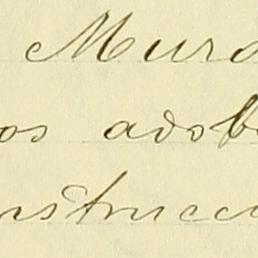 Muro
os adob
nstrucci